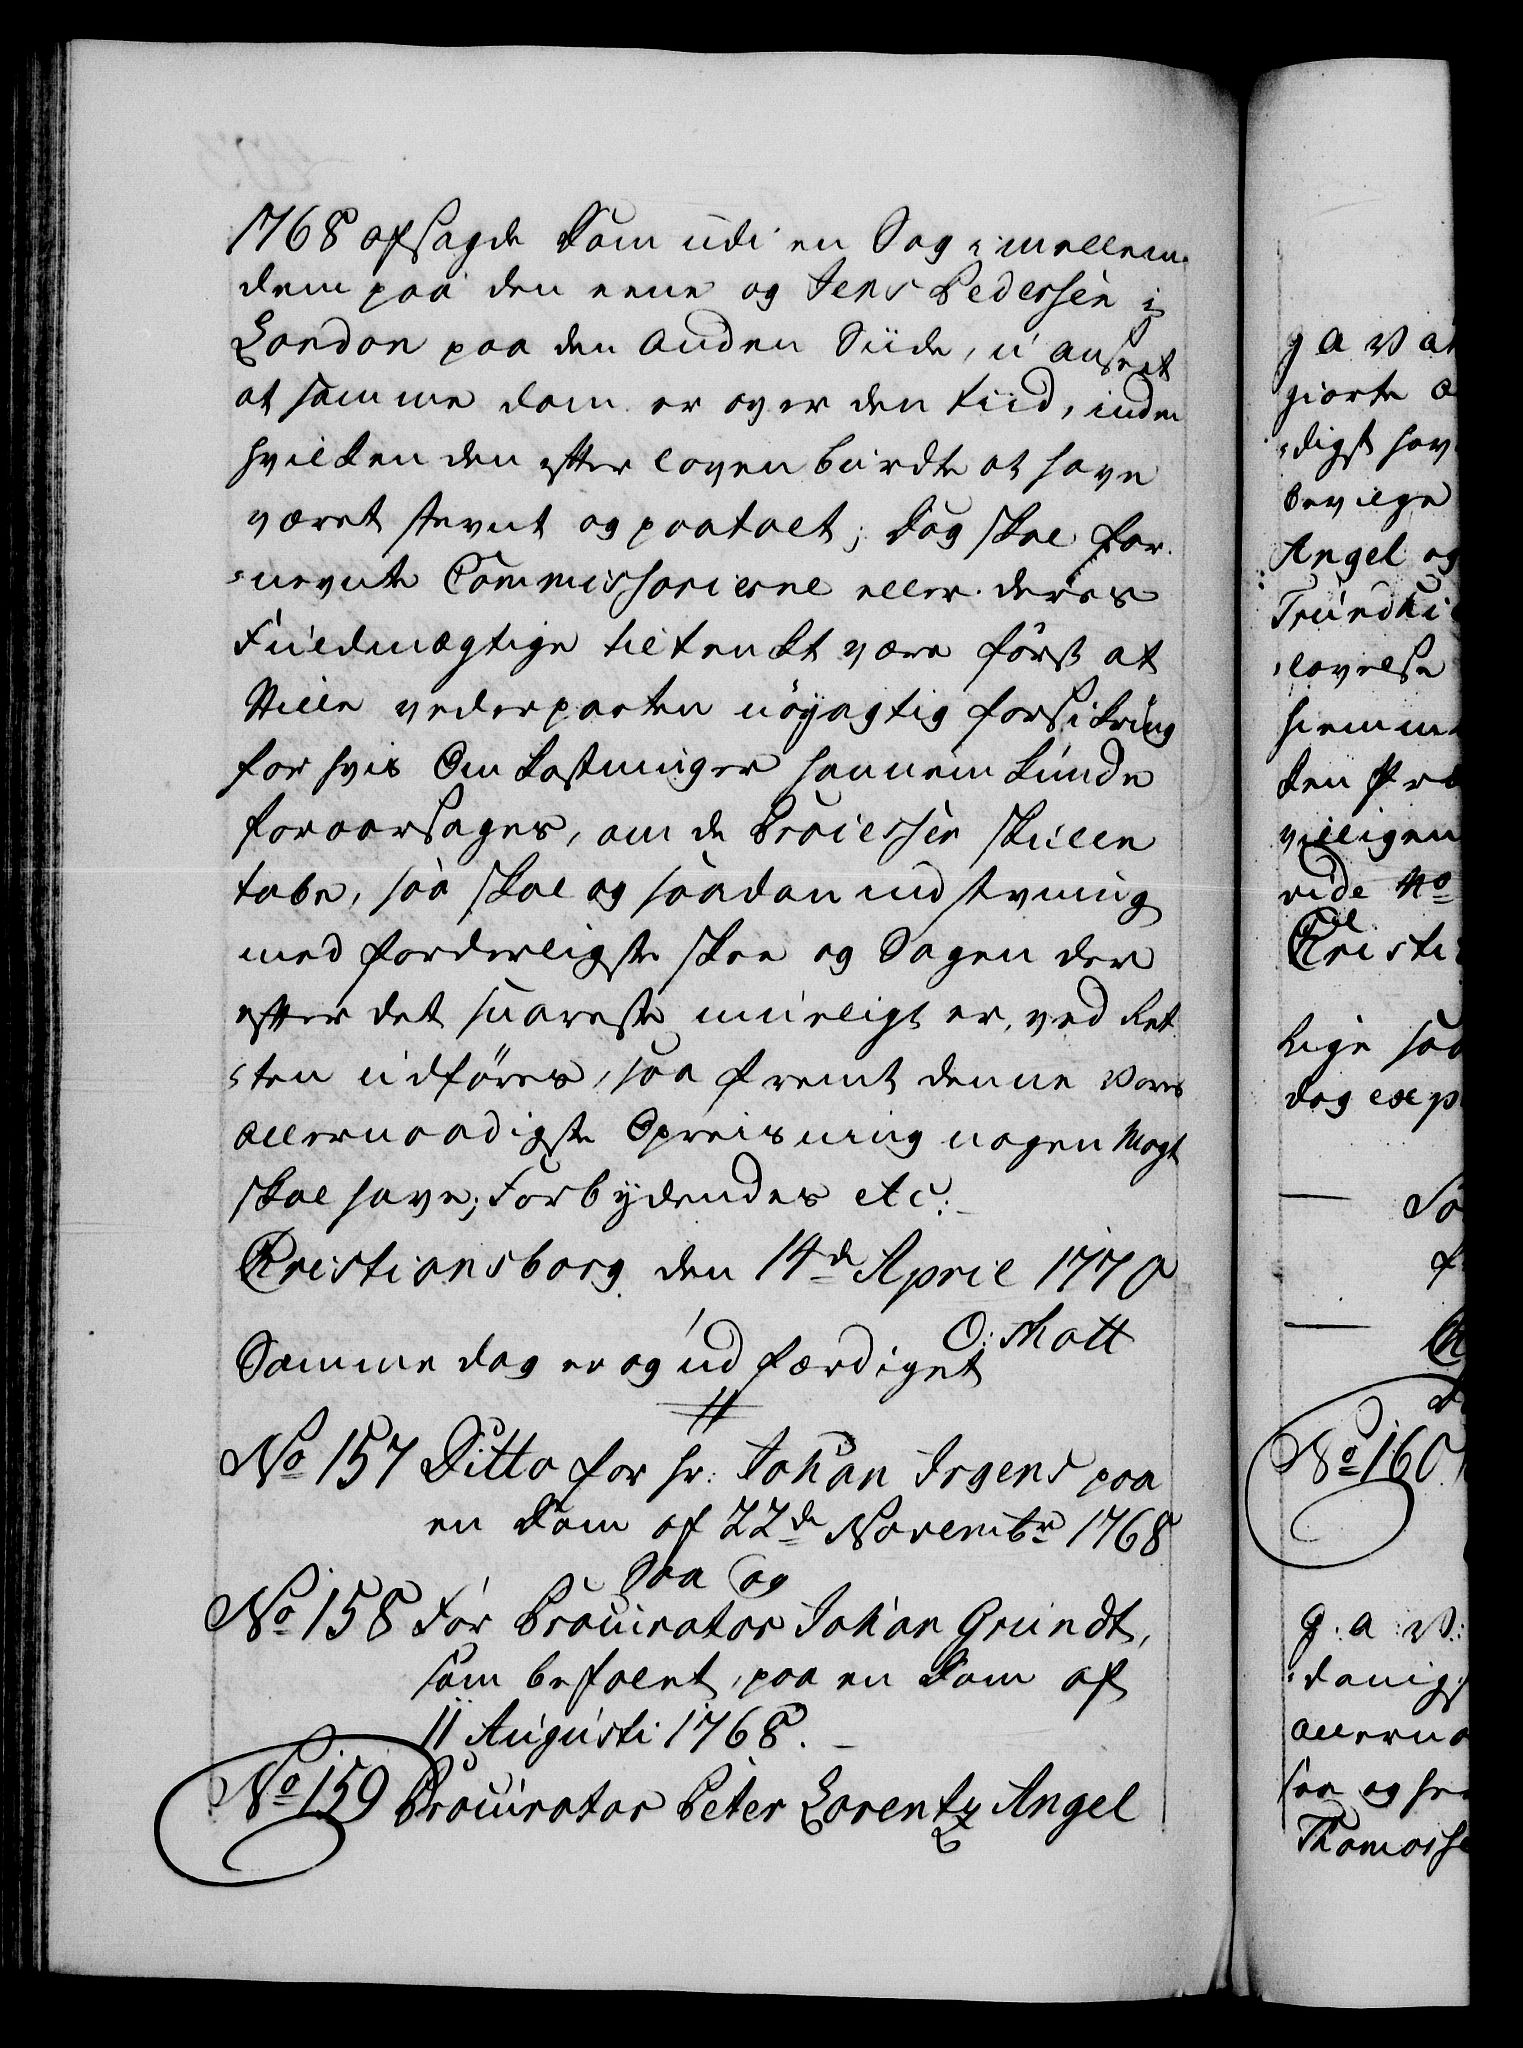 1768 afsagde Dom udi en Sag imellem
dem paa den eene og Jens Pedersen i
London paa den anden Siide, u anseet
at samme dom er over den tiid, inden
hvilken den efter loven burdte at have
været stevnt og paatalt; dog skal for
=nevnte Commissarierne eller deres
Fuldmægtige tiltenkt være først at
stille vederparten nöyagtig forsikring
for hvis Omkostninger hannem kunde
foraarsages, om de Processen skulle
tabe, saa skal og saadan indstevning
med forderligste skee og Sagen der
efter det snareste mueligt er, ved Ret
=ten udføres, saa fremt denne Vores
allernaadigste Opreisning nogen Magt
skal have; Forbydendes etc:
Christiansborg den 14de April 1770
O: Thott
Samme dag er og udfærdiget
No 157 Ditto for hr: Johan Irgens paa
en Dom af 22de Novembr 1768
Saa og
No 158 For Procurator Johan Grundt,
som befalet, paa en Dom af
11 Augusti 1768.
No 159 Procurator Peter Lorentz Angel
g a V at
giorte
=digst hav
bevilge
Angel og
Trundhi
=lovelse
hiemm
ken
villigen
vide No
Christi
Lige saa
dag exp
No 160
g: a: V:
=danigs
allerna
saa og
Thomasse